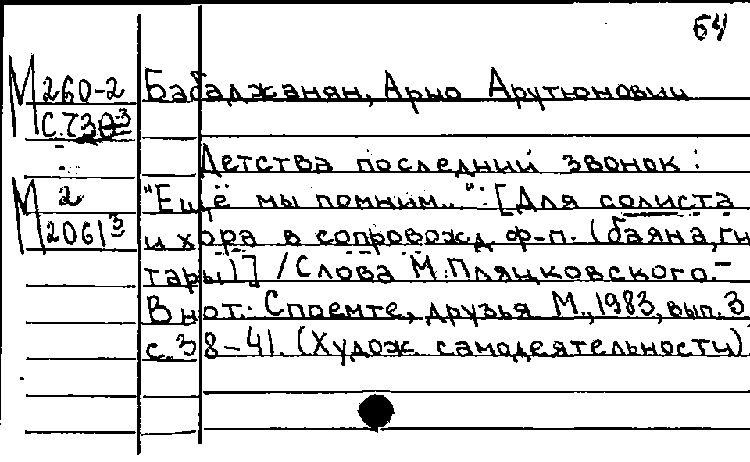 64
М 260-2
С.730³
Бабаджанян, Арно Арутюнович
Детства последний звонок :
"Ещё мы помним...": [Для солиста
М 2
2061³
и хора в сопровожд. ф-п. (баяна, ги
тары)] / Слова М. Пляцковского. –
В нот.: Споемте, друзья М., 1983, вып. 3
с. 38-41. (Худож. самодеятельности)